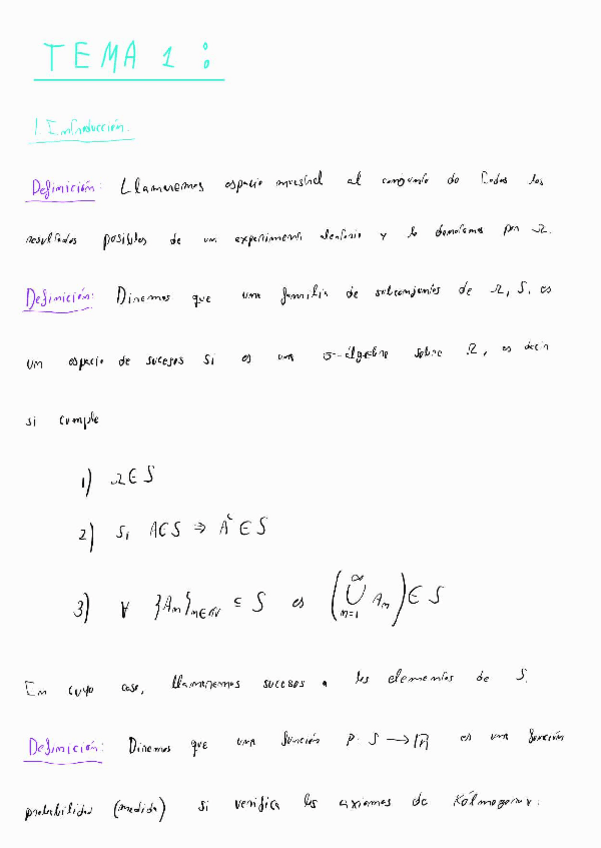 TEMA 1:
1. Introducción.
Definición: Llamaremos espacio muestral al conjunto de todos los
resultados posibles de un experimento aleatorio y lo denotamos por Ω.
Definición: Diremos que una familia de subconjuntos de Ω, S, es
un espacio de sucesos si es una σ-álgebra sobre Ω, es decir
si cumple
1) Ω ∈ S
2) Si A ∈ S ⇒ Aᶜ ∈ S
3) ∀ {Aₙ}ₙ∈ℕ ⊆ S es (⋃ₙ₌₁^∞ Aₙ) ∈ S
En cuyo caso, llamaremos sucesos a los elementos de S.
Definición: Diremos que una función p: S → ℝ es una función
probabilidad (medida) si verifica los axiomas de Kólmogorov: